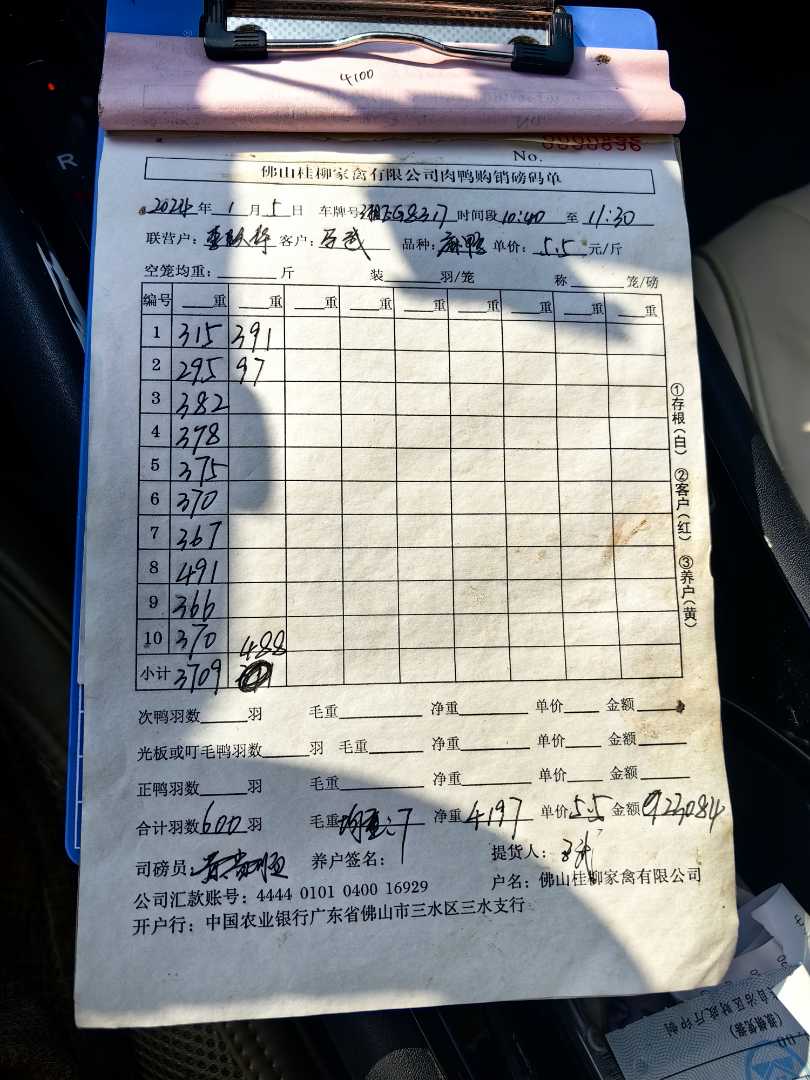 4100
No. 0000896
佛山桂柳家禽有限公司肉鸭购销磅码单
2024年 1月 5日 车牌号 G8317 时间段 10:40 至 11:30
联营户： 客户： 品种：麻鸭 单价：5.5 元/斤
空笼均重：____斤 装____羽/笼 称____笼/磅
编号 __重 __重 __重 __重 __重 __重 __重 __重 __重
1 315 391
2 295 97
3 382
4 378
5 375
6 370
7 367
8 491
9 366
10 370 488
小计 3709
次鸭羽数____羽 毛重____ 净重____ 单价____ 金额____
光板或叮毛鸭羽数____羽 毛重____ 净重____ 单价____ 金额____
正鸭羽数____羽 毛重____ 净重____ 单价____ 金额____
合计羽数600羽 毛重 均重:7 净重4197 单价5.5 金额23084
司磅员： 养户签名： 提货人：
公司汇款账号：4444 0101 0400 16929 户名：佛山桂柳家禽有限公司
开户行：中国农业银行广东省佛山市三水区三水支行
①存根(白) ②客户(红) ③养户(黄)
自治区财政厅印制